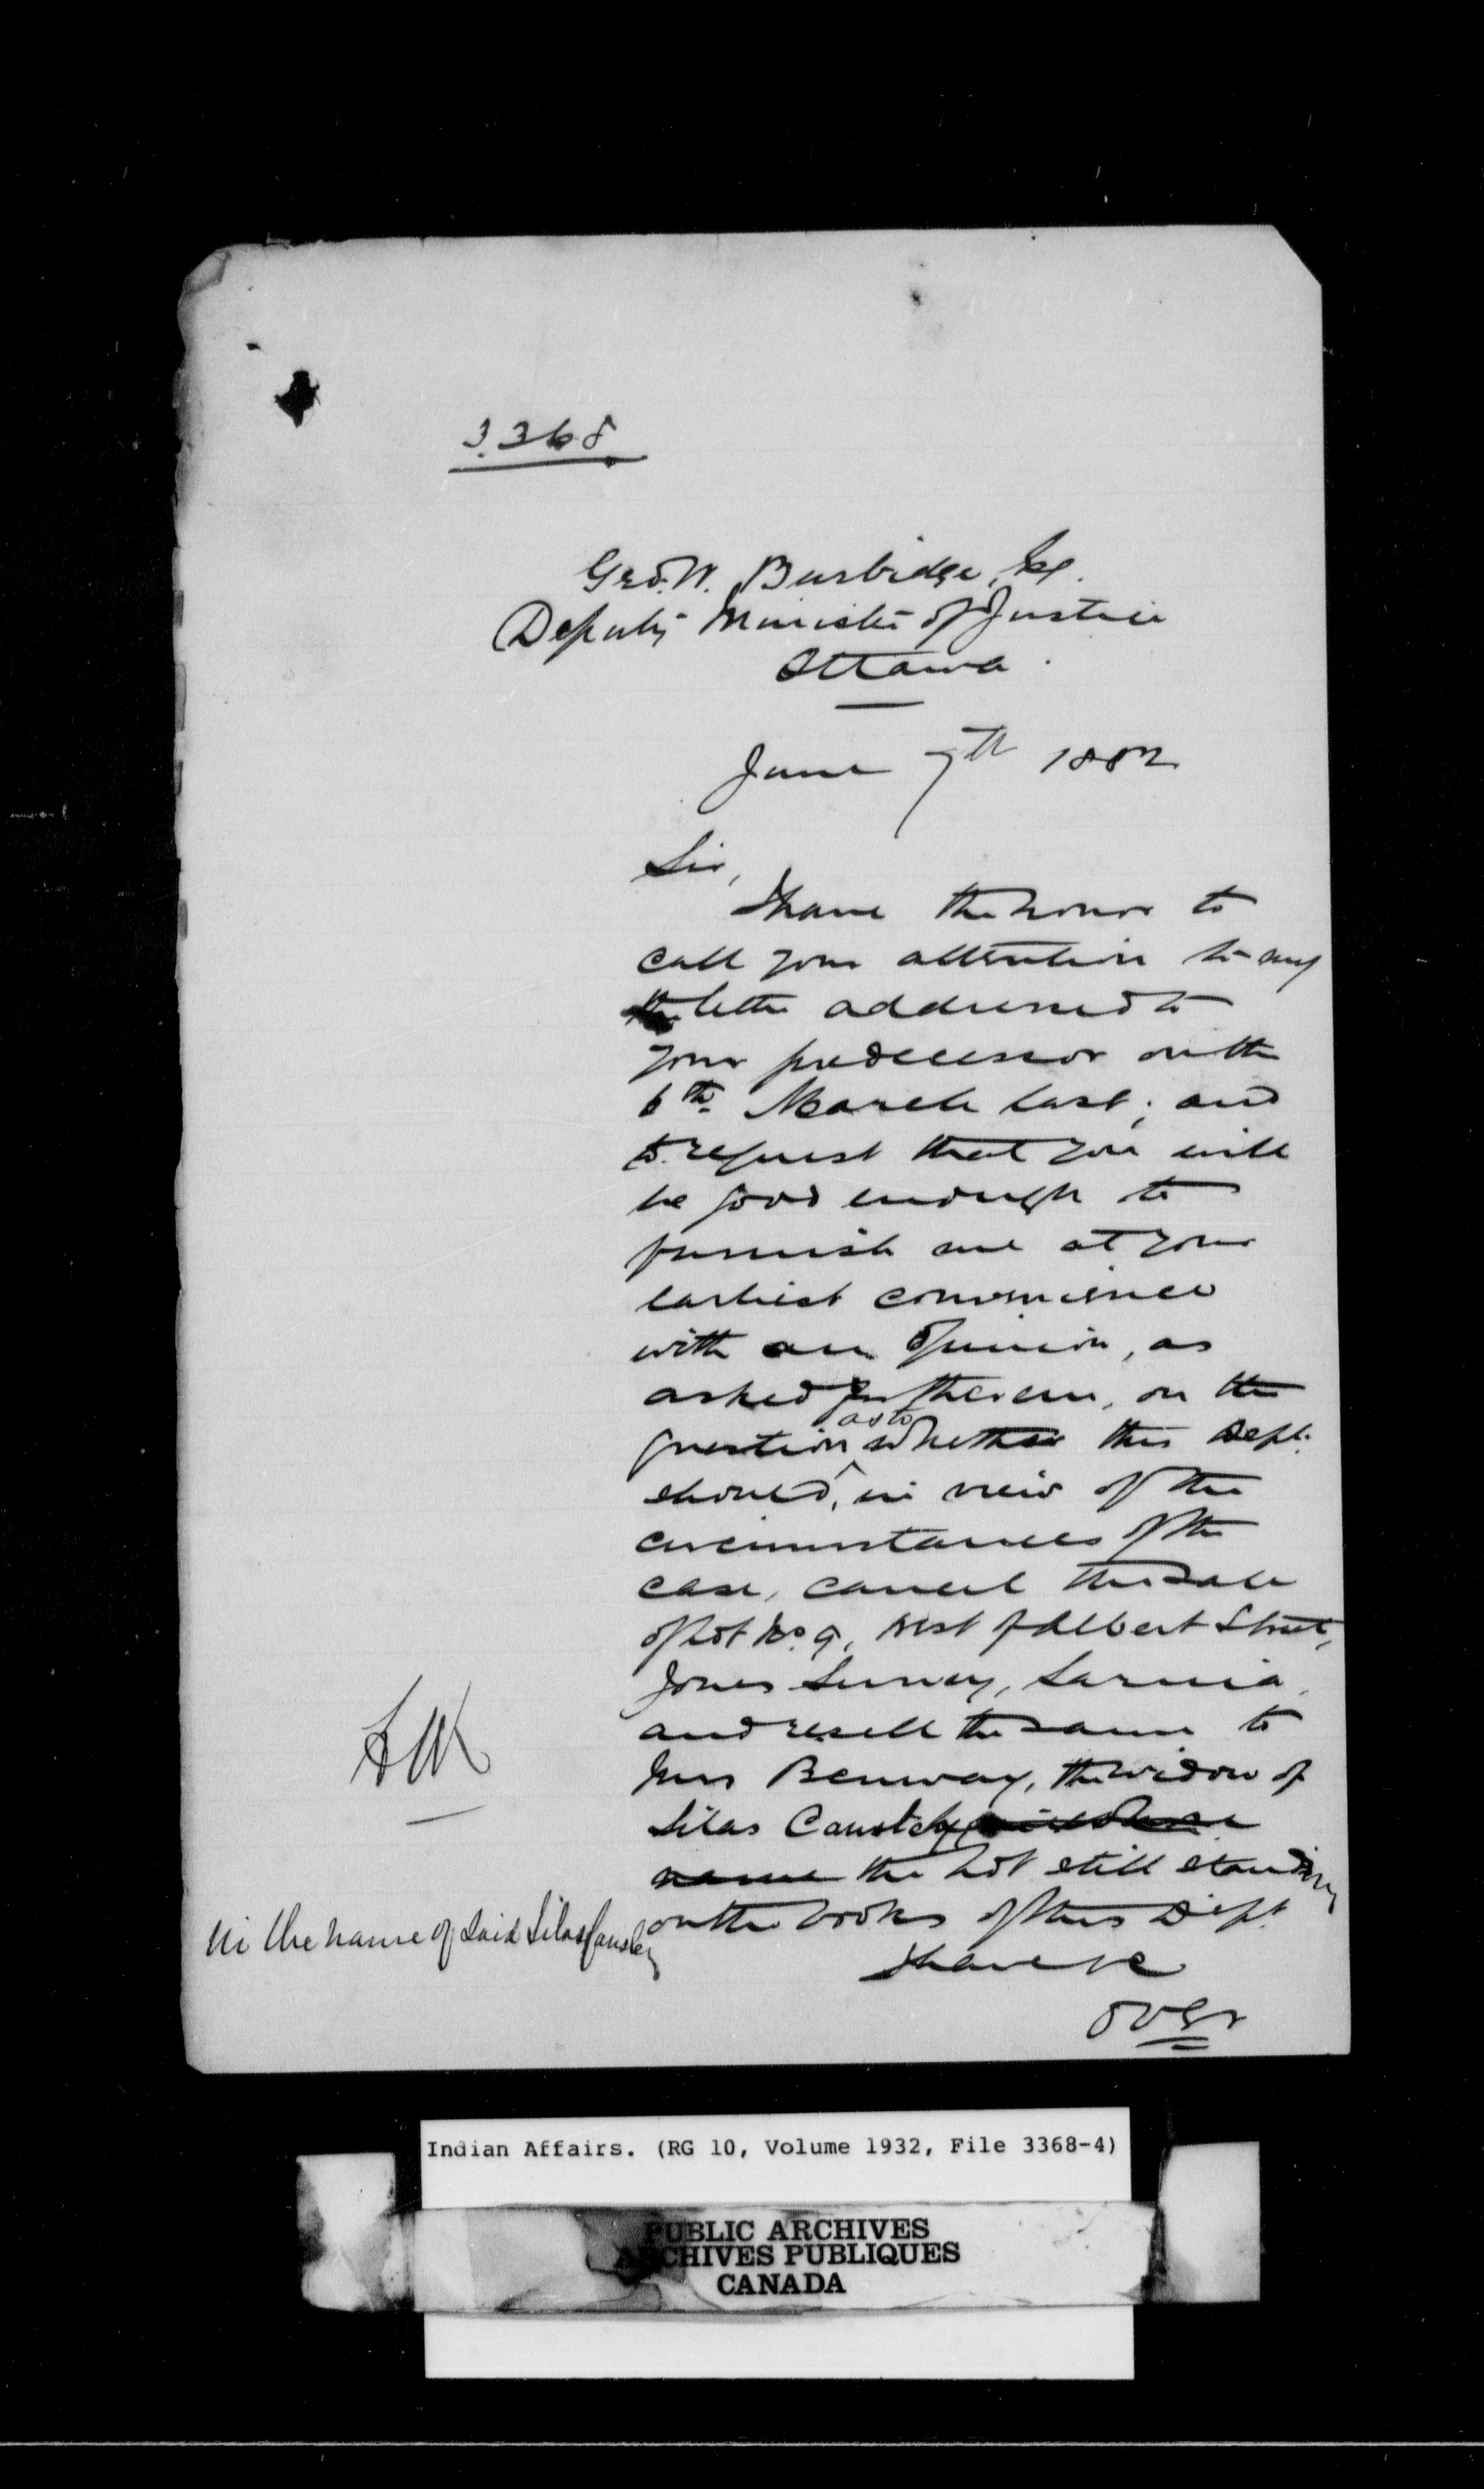 3368
Geo. W. Burbidge, Esq.
Deputy Minister of Justice
Ottawa.
June 7th 1882
Sir,
I have the honor to
call your attention to my
the letter addressed to
your predecessor on the
6th March last; and
to request that you will
be good enough to
furnish me at your
earliest convenience
with an opinion, as
asked for therein, on the
question as to whether this Dept.
should, in view of the
circumstances of the
case, cancel the sale
of Lot No. 9, West of Albert Street,
Jones Survey, Sarnia,
and resell the same to
Mrs Benway, the widow of
Silas Causley, in whose
name the lot still standing
in the name of said Silas Causley
on the books of this Dept
I have &c
over
Indian Affairs. (RG 10, Volume 1932, File 3368-4)
PUBLIC ARCHIVES
ARCHIVES PUBLIQUES
CANADA